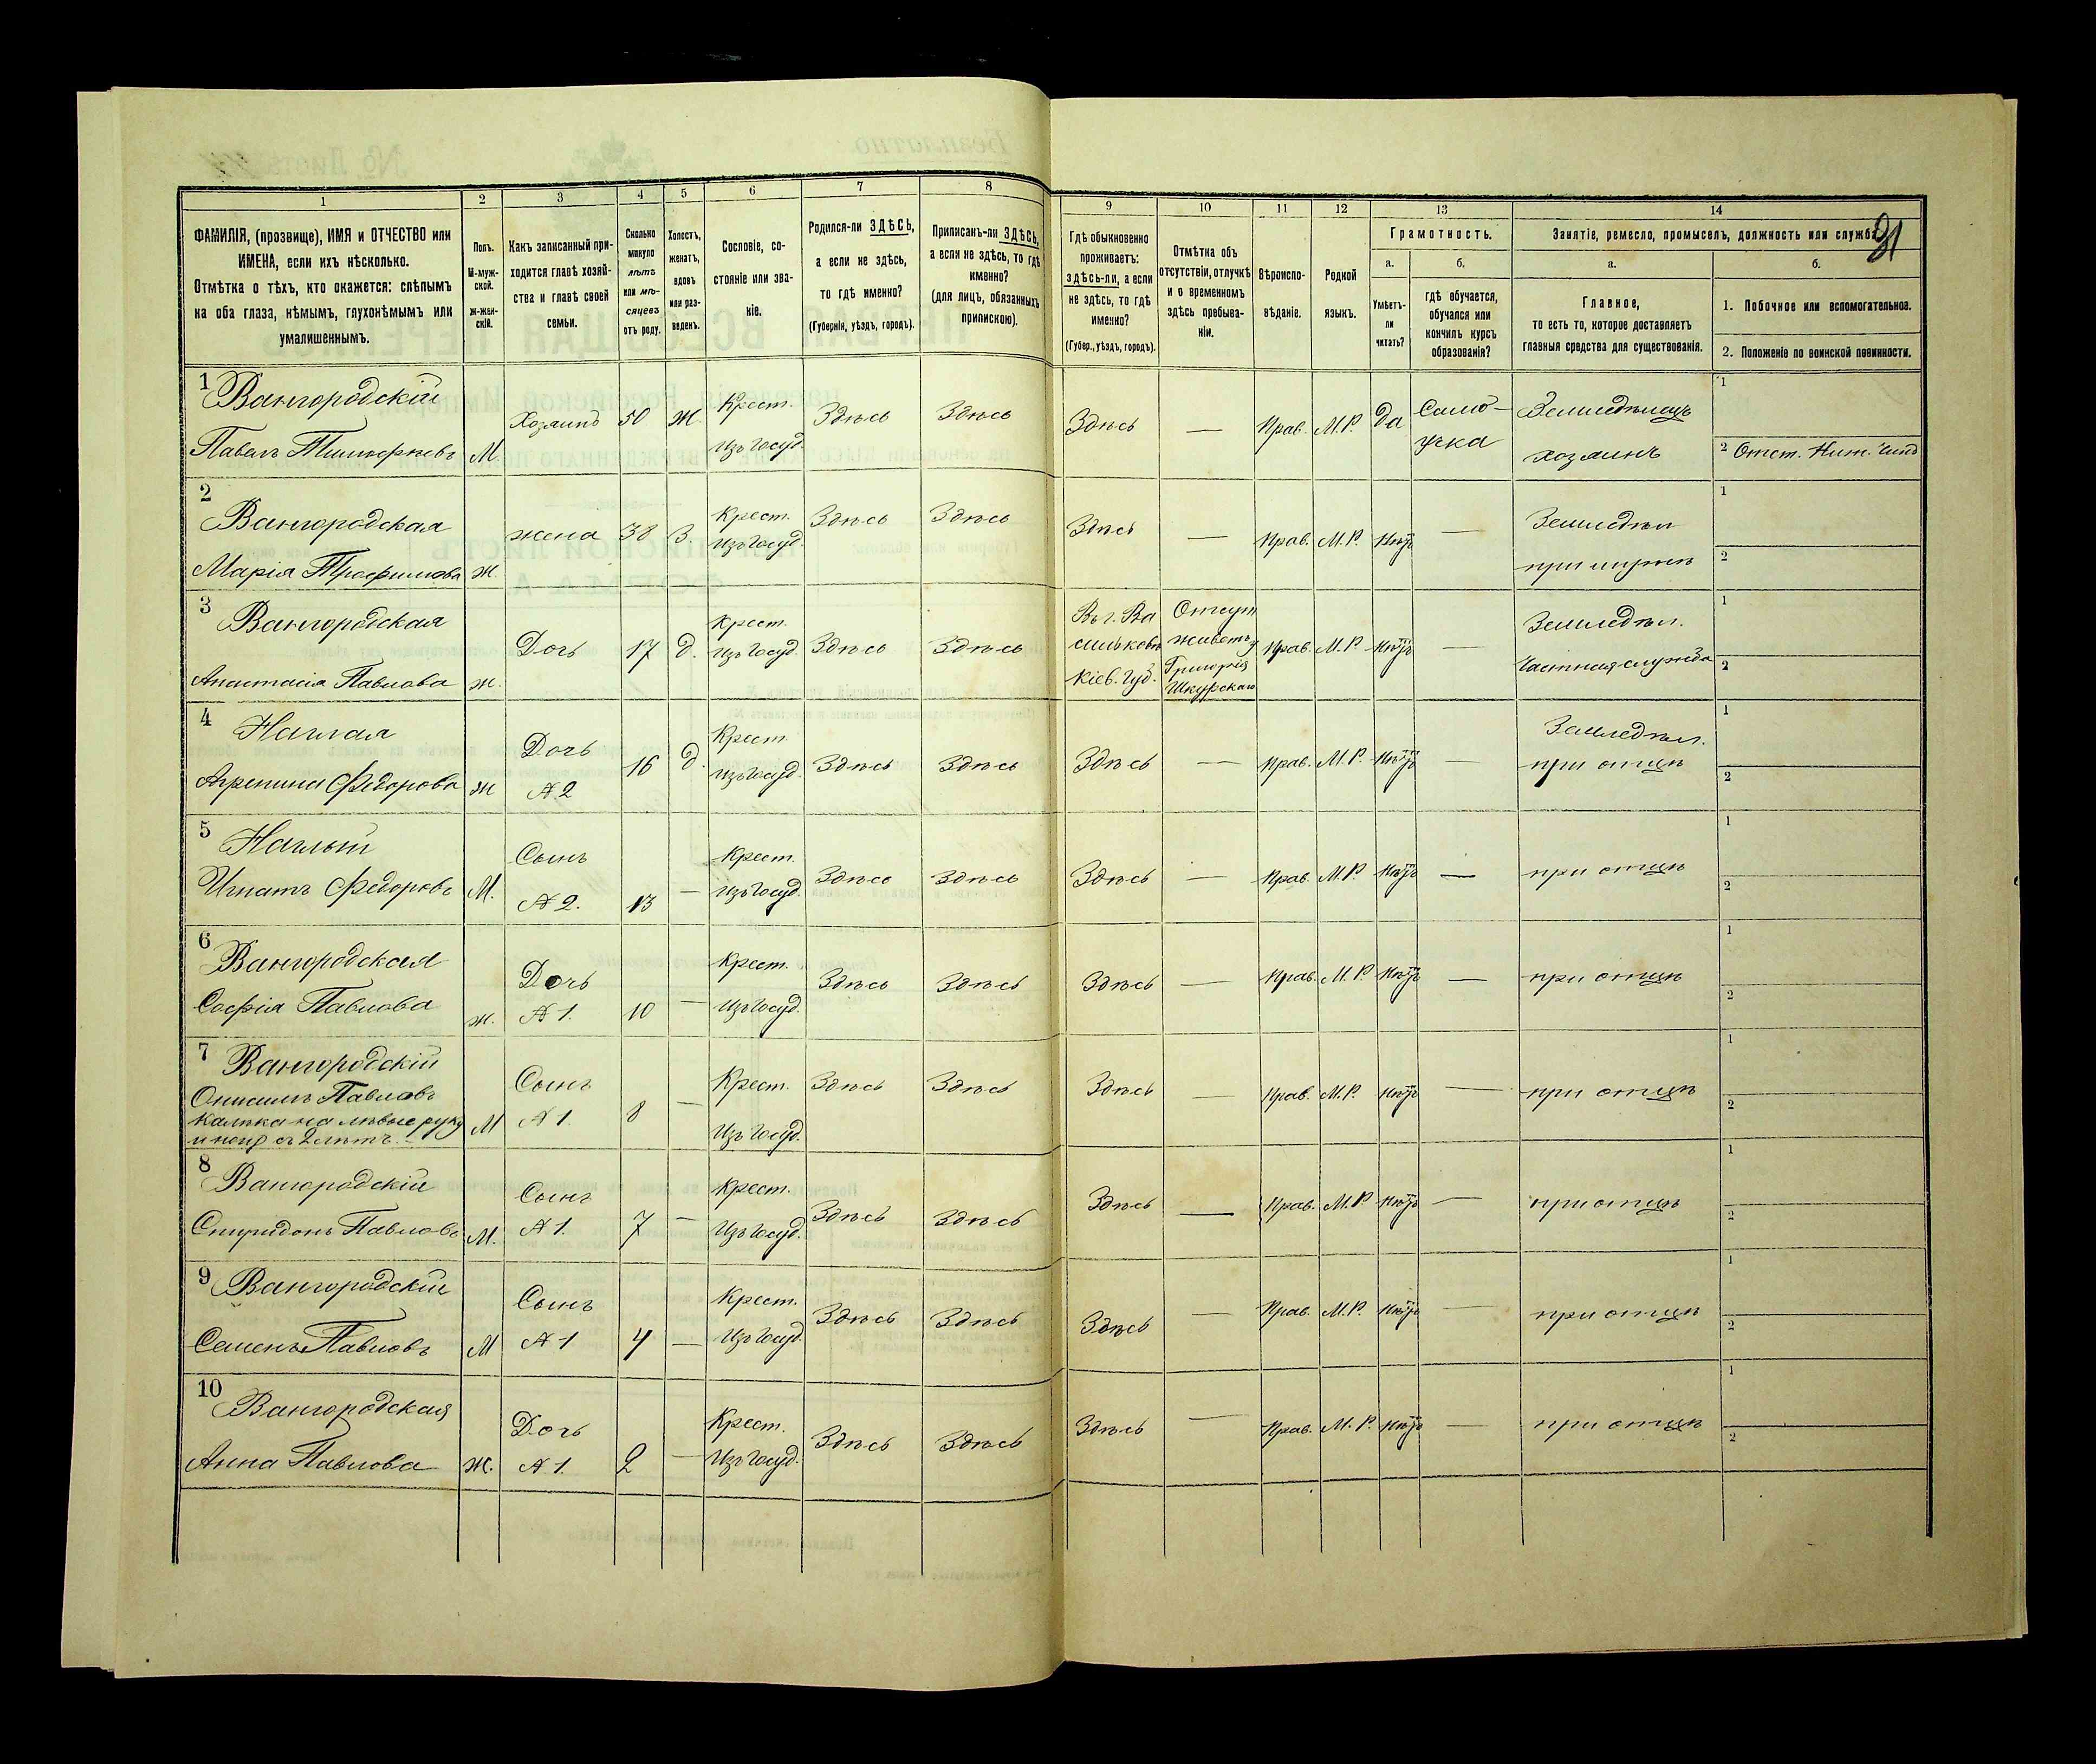 1 2 3 4 5 6 7 8 9 10 11 12 13 14
ФАМИЛІЯ, (прозвище), ИМЯ и ОТЧЕСТВО или
ИМЕНА, если ихъ нѣсколько.
Отмѣтка о тѣхъ, кто окажется: слѣпымъ
на оба глаза, нѣмымъ, глухонѣмымъ или
умалишеннымъ.
Полъ.
М-муж-
ской.
Ж-жен-
скій.
Какъ записанный при-
ходится главѣ хозяй-
ства и главѣ своей
семьи.
Сколько
минуло
лѣтъ
или мѣ-
сяцевъ
отъ роду.
Холостъ,
женатъ,
вдовъ
или раз-
веденъ.
Сословіе, со-
стояніе или зва-
ніе.
Родился-ли ЗДѢСЬ,
а если не здѣсь,
то гдѣ именно?
(Губернія, уѣздъ, городъ).
Приписанъ-ли ЗДѢСЬ,
а если не здѣсь, то гдѣ
именно?
(для лицъ, обязанныхъ
припискою).
Гдѣ обыкновенно
проживаетъ:
здѣсь-ли, а если
не здѣсь, то гдѣ
именно?
(Губер., уѣздъ, городъ).
Отмѣтка объ
отсутствіи, отлучкѣ
и о временномъ
здѣсь пребыва-
ніи.
Вѣроиспо-
вѣданіе.
Родной
языкъ.
Грамотность.
а.
Умѣетъ-
ли
читать?
б.
гдѣ обучается,
обучался или
кончилъ курсъ
образованія?
Занятіе, ремесло, промыселъ, должность или служба.
а.
Главное,
то есть то, которое доставляетъ
главныя средства для существованія.
б.
1. Побочное или вспомогательное.
2. Положеніе по воинской повинности.
1 Вангородскій
Павелъ М.
Хозяинъ 50 Ж.
Крест.
изъ Госуд.
Здѣсь Здѣсь Здѣсь — Прав. М.Р. Да
Само-
учка
Земледѣлецъ
хозяинъ
1
2 Отст. Ниж. Чинъ
2
Вангородская
Марія Трофимова Ж.
жена 38 З.
Крест.
изъ Госуд.
Здѣсь Здѣсь Здѣсь — Прав. М.Р. Нѣтъ —
Земледѣл
при мужѣ
1
2
3
Вангородская
Анастасія Павлова Ж.
Дочь 17 Д.
Крест.
изъ Госуд.
Здѣсь Здѣсь
Въ г. Ва
сильковѣ
Кіев. Губ.
Отсут
живетъ у
Григорія
Шкурскаго
Прав. М.Р. Нѣтъ —
Земледѣл.
Частная служба
1
2
4
Наглая
Агрепина Федорова Ж
Дочь
№ 2
16 Д.
Крест.
изъ Госуд.
Здѣсь Здѣсь Здѣсь — Прав. М.Р. Нѣтъ —
Земледѣл.
при отцѣ
1
2
5
Наглый
Игнатъ Федоровъ М.
Сынъ
№ 2.
13 —
Крест.
изъ Госуд.
Здѣсь Здѣсь Здѣсь — Прав. М.Р. Нѣтъ — при отцѣ
1
2
6
Вангородская
Софія Павлова Ж.
Дочь
№ 1.
10 —
Крест.
изъ Госуд.
Здѣсь Здѣсь Здѣсь — Прав. М.Р. Нѣтъ — при отцѣ
1
2
7 Вангородскій
Онисимъ Павловъ
Калѣка на лѣвые руку
и ногу съ 2 лѣтъ. М
Сынъ
№ 1.
8 —
Крест.
изъ Госуд.
Здѣсь Здѣсь Здѣсь — Прав. М.Р. Нѣтъ — при отцѣ
1
2
8
Вангородскій
Спиридонъ Павловъ М.
Сынъ
№ 1.
7 —
Крест.
изъ Госуд.
Здѣсь Здѣсь Здѣсь — Прав. М.Р. Нѣтъ — при отцѣ
1
2
9 Вангородскій
Семенъ Павловъ М
Сынъ
№ 1
4 —
Крест.
изъ Госуд.
Здѣсь Здѣсь Здѣсь — Прав. М.Р. Нѣтъ — при отцѣ
1
2
10
Вангородская
Анна Павлова Ж.
Дочь
№ 1.
2 —
Крест.
изъ Госуд.
Здѣсь Здѣсь Здѣсь — Прав. М.Р. Нѣтъ — при отцѣ
1
2